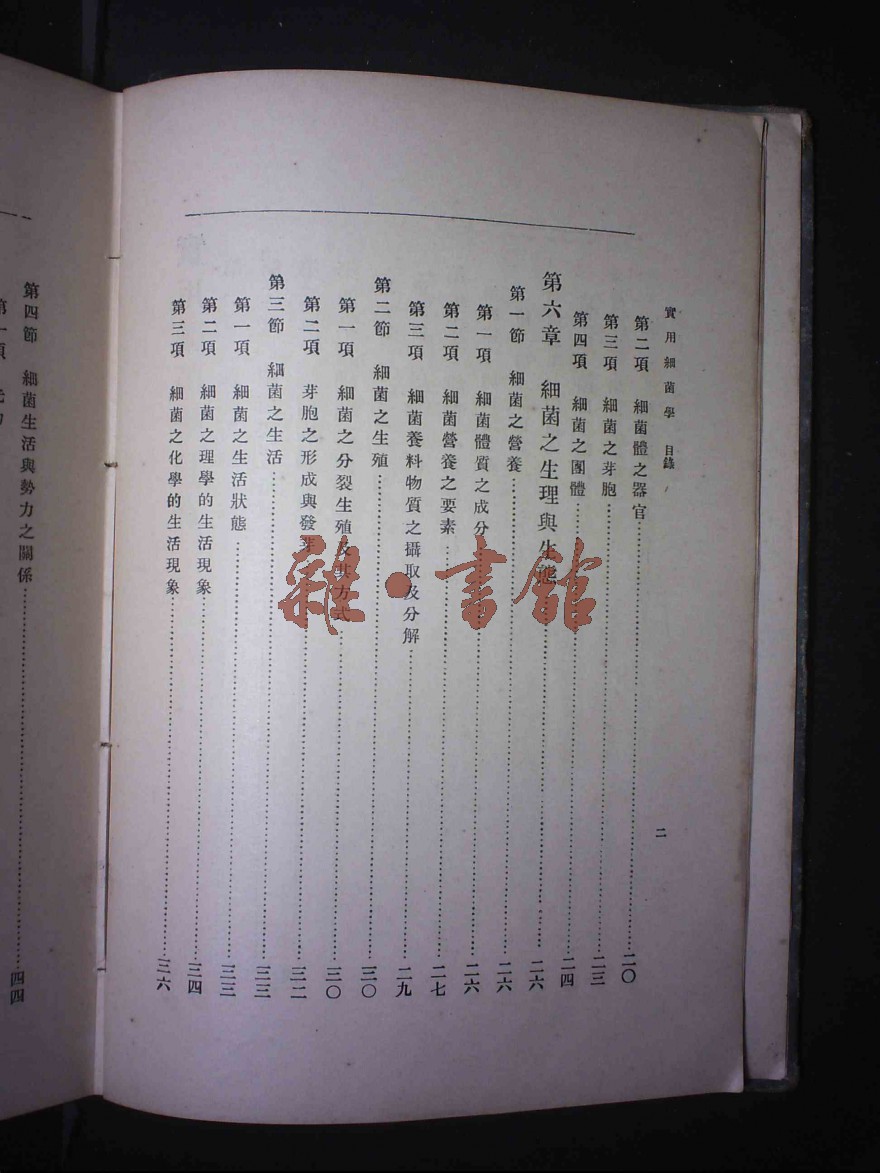 實用細菌學 目錄
二
第二項 細菌體之器官……二〇
第三項 細菌之芽胞……二三
第四項 細菌之團體……二四
第六章 細菌之生理與生態……二六
第一節 細菌之營養……二六
第一項 細菌體質之成分……二六
第二項 細菌營養之要素……二七
第三項 細菌養料物質之攝取及分解……二九
第二節 細菌之生殖……三〇
第一項 細菌之分裂生殖及其方式……三〇
第二項 芽胞之形成與發芽……三二
第三節 細菌之生活……三三
第一項 細菌之生活狀態……三三
第二項 細菌之理學的生活現象……三四
第三項 細菌之化學的生活現象……三六
第四節 細菌生活與勢力之關係……四四
第一項
雜·書館